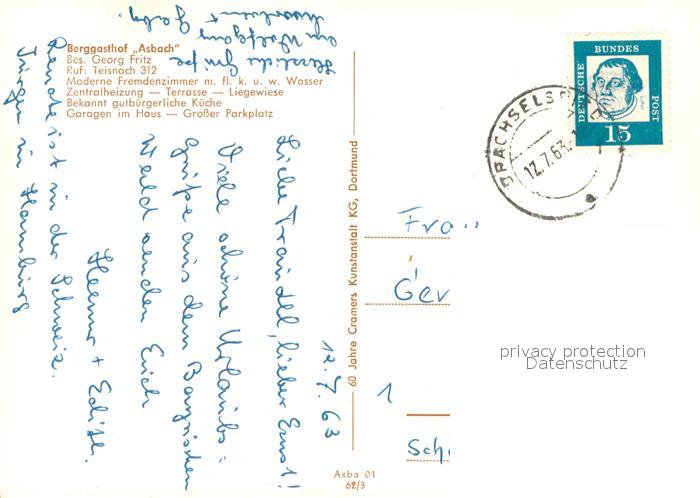 Berggasthof „Asbach"
Bes. Georg Fritz
Ruf: Teisnach 312
Moderne Fremdenzimmer m. fl. k. u. w. Wasser
Zentralheizung — Terrasse — Liegewiese
Bekannt gutbürgerliche Küche
Garagen im Haus — Großer Parkplatz
12.7.63
Liebe Traudel, lieber Ernst!
Viele schöne Urlaubs=
grüße aus dem Bayrischen
Wald senden Euch
+ Edith.
Renate ist in der Schweiz.
Jürgen in Hamburg
Herzliche Grüße
60 Jahre Cramers Kunstanstalt KG, Dortmund
Asba 01
62/3
DEUTSCHE
BUNDES
POST
15
12.7.63
Fra
Gev
1
Sch
privacy protection
Datenschutz